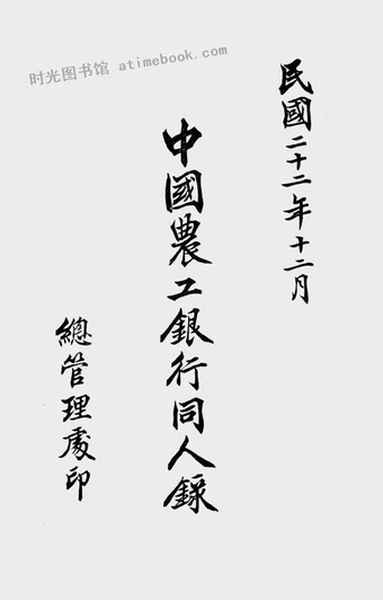 时光图书馆 atimebook.com
民國二十二年十二月
中國農工銀行同人錄
總管理處印